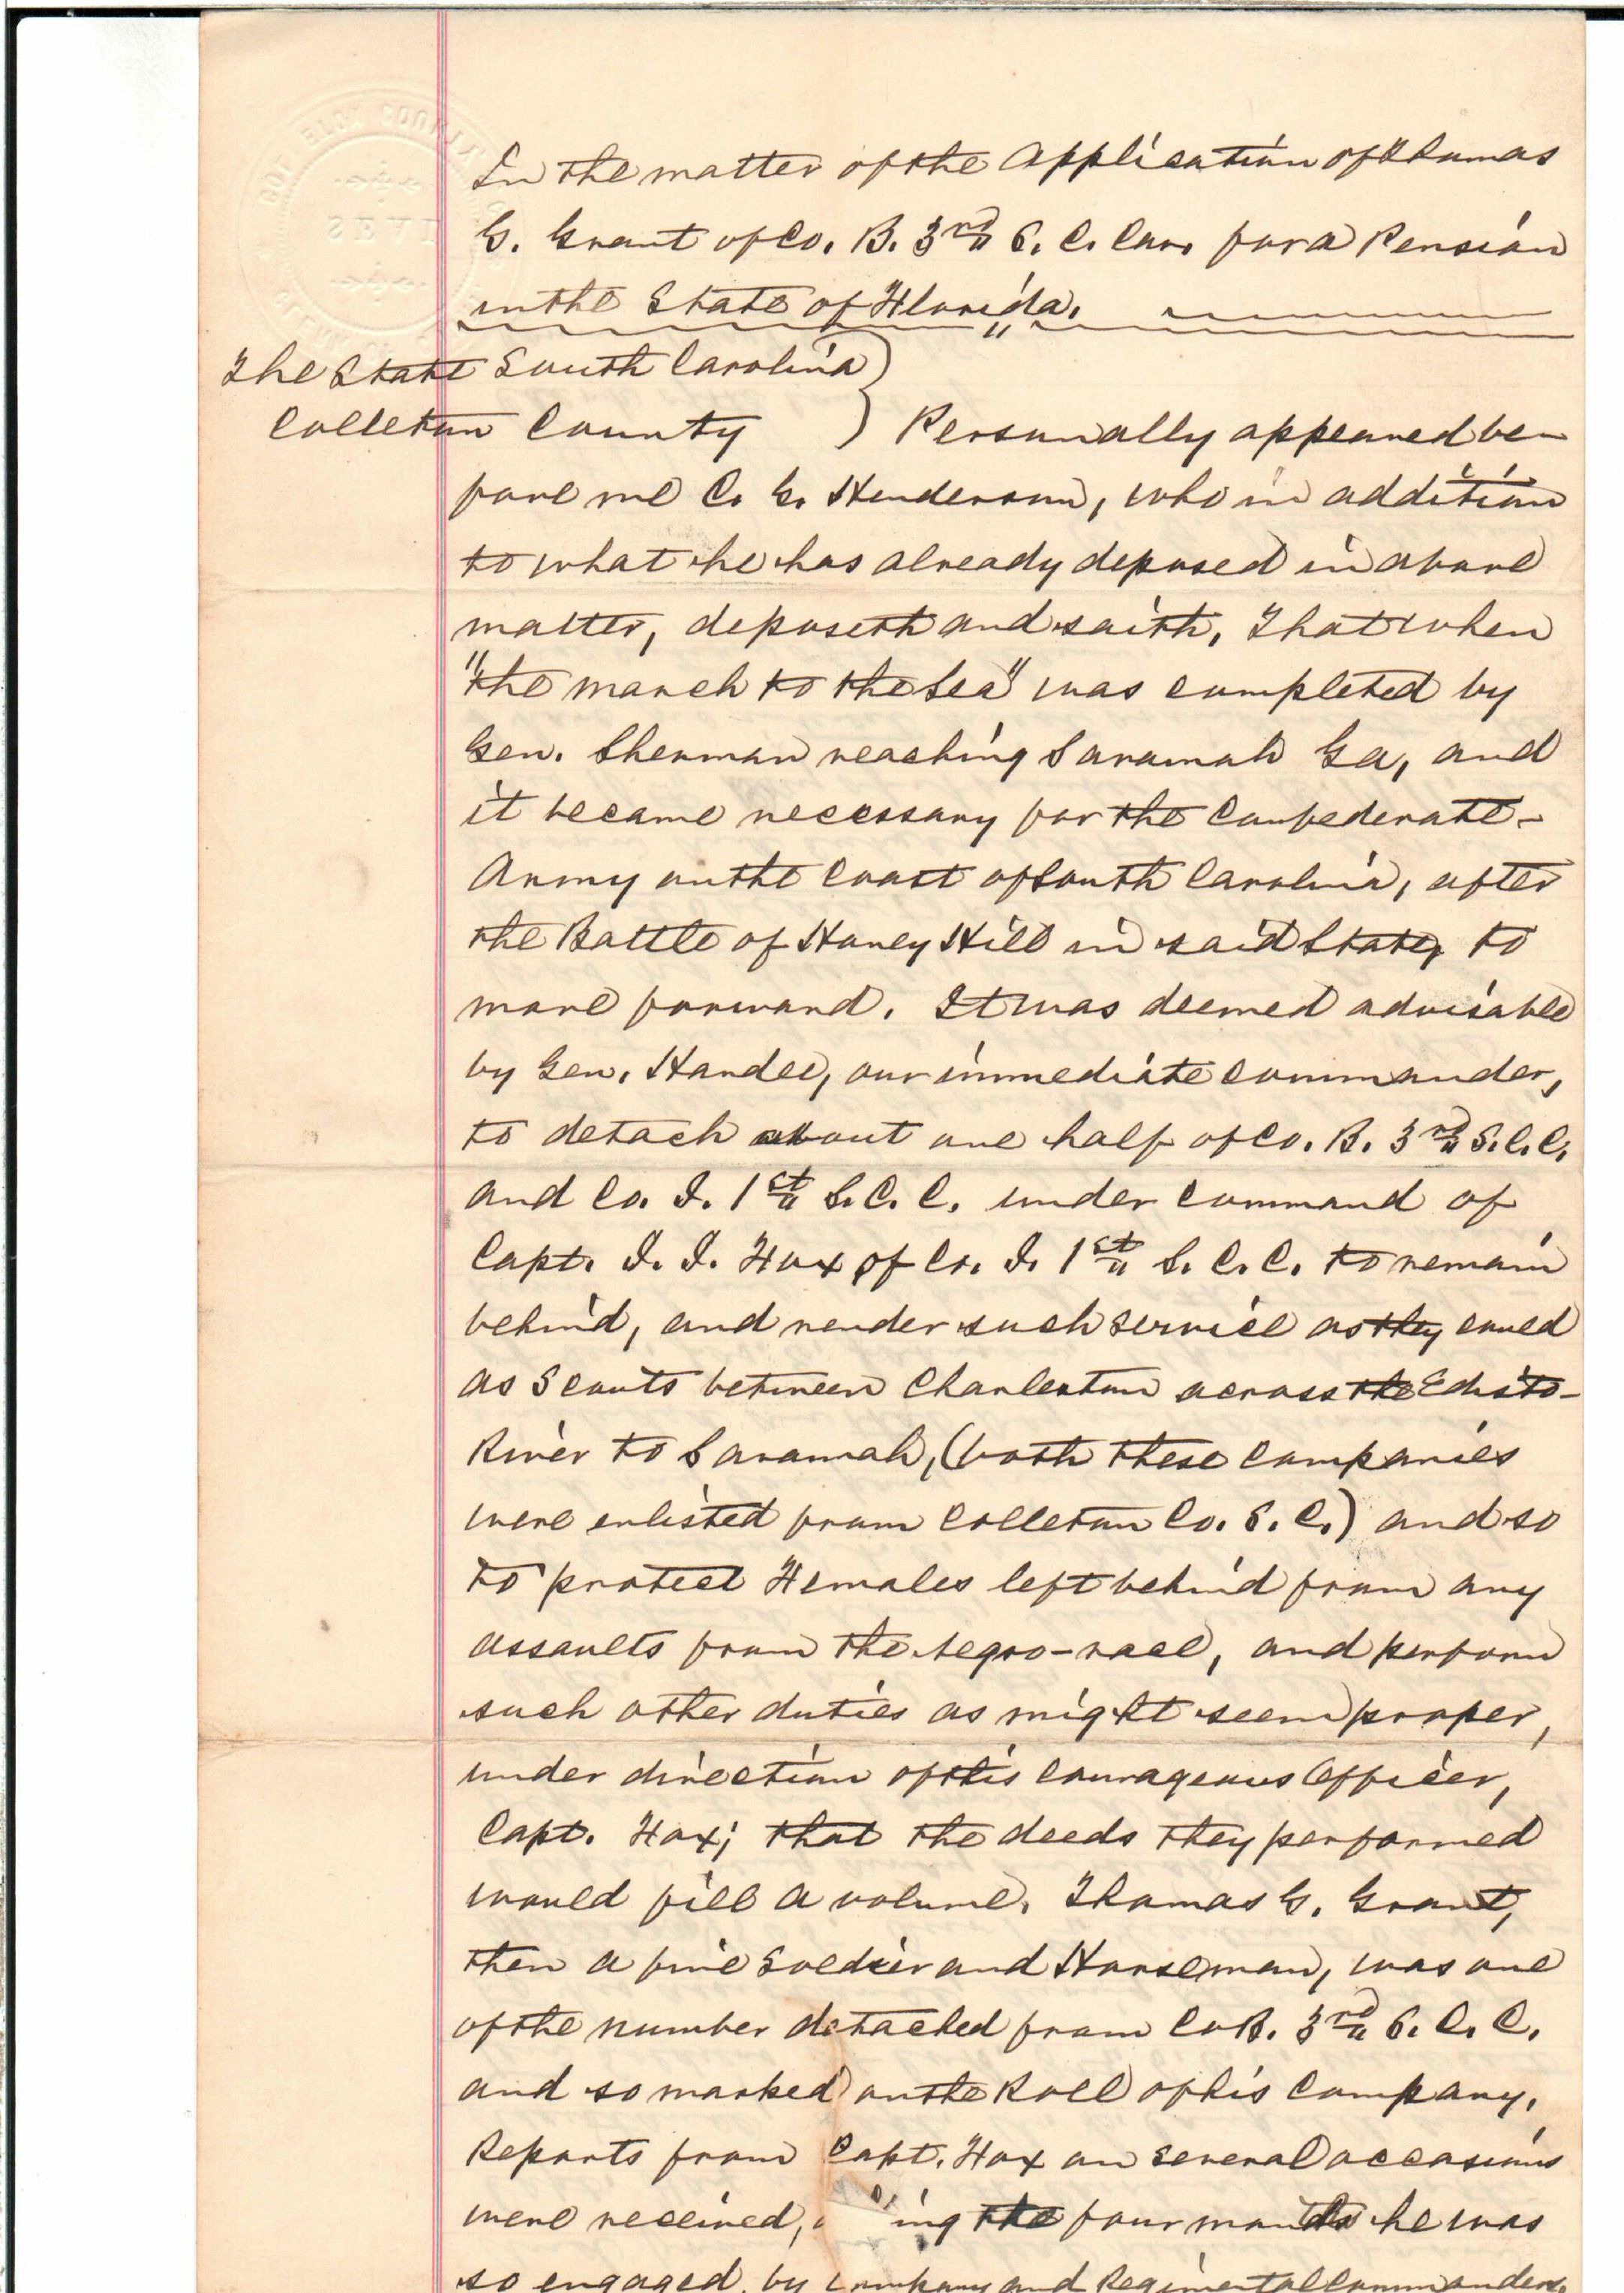 In the matter of the Application of Thomas
G. Grant of Co. B. 3rd S. C. Cav. for a Pension
in the State of Florida.
The State South Carolina)
Colleton County ) Personally appeared be-
fore me C. G. Henderson, who in addition
to what he has already deposed in above
matter, deposeth and saith, That when
"the march to the Sea" was completed by
Gen. Sherman reaching Savannah Ga, and
it became necessary for the Confederate-
Army on the Coast of South Carolina, after
the Battle of Honey Hill in said State, to
move forward. It was deemed advisable
by Gen. Hardee, our immediate commander,
to detach about one half of Co. B. 3rd S. C. C.
and Co. I. 1st S. C. C. under command of
Capt. J. J. Fox of Co. I. 1st S. C. C. to remain
behind, and render such service as they could
as Scouts between Charleston across the Edisto-
River to Savannah, (both these companies
were enlisted from Colleton Co. S. C.) and so
to protect Females left behind from any
assaults from the Negro-race, and perform
such other duties as might seem proper,
under direction of this courageous Officer,
Capt. Fox; that the deeds they performed
would fill a volume. Thomas G. Grant,
then a fine Soldier and Horseman, was one
of the number detached from Co B. 3rd S. C. C.
and so marked on the Roll of his Company.
Reports from Capt. Fox on several occasions
were received, ing the four months he was
so engaged, by Company and Regimental Commanders.